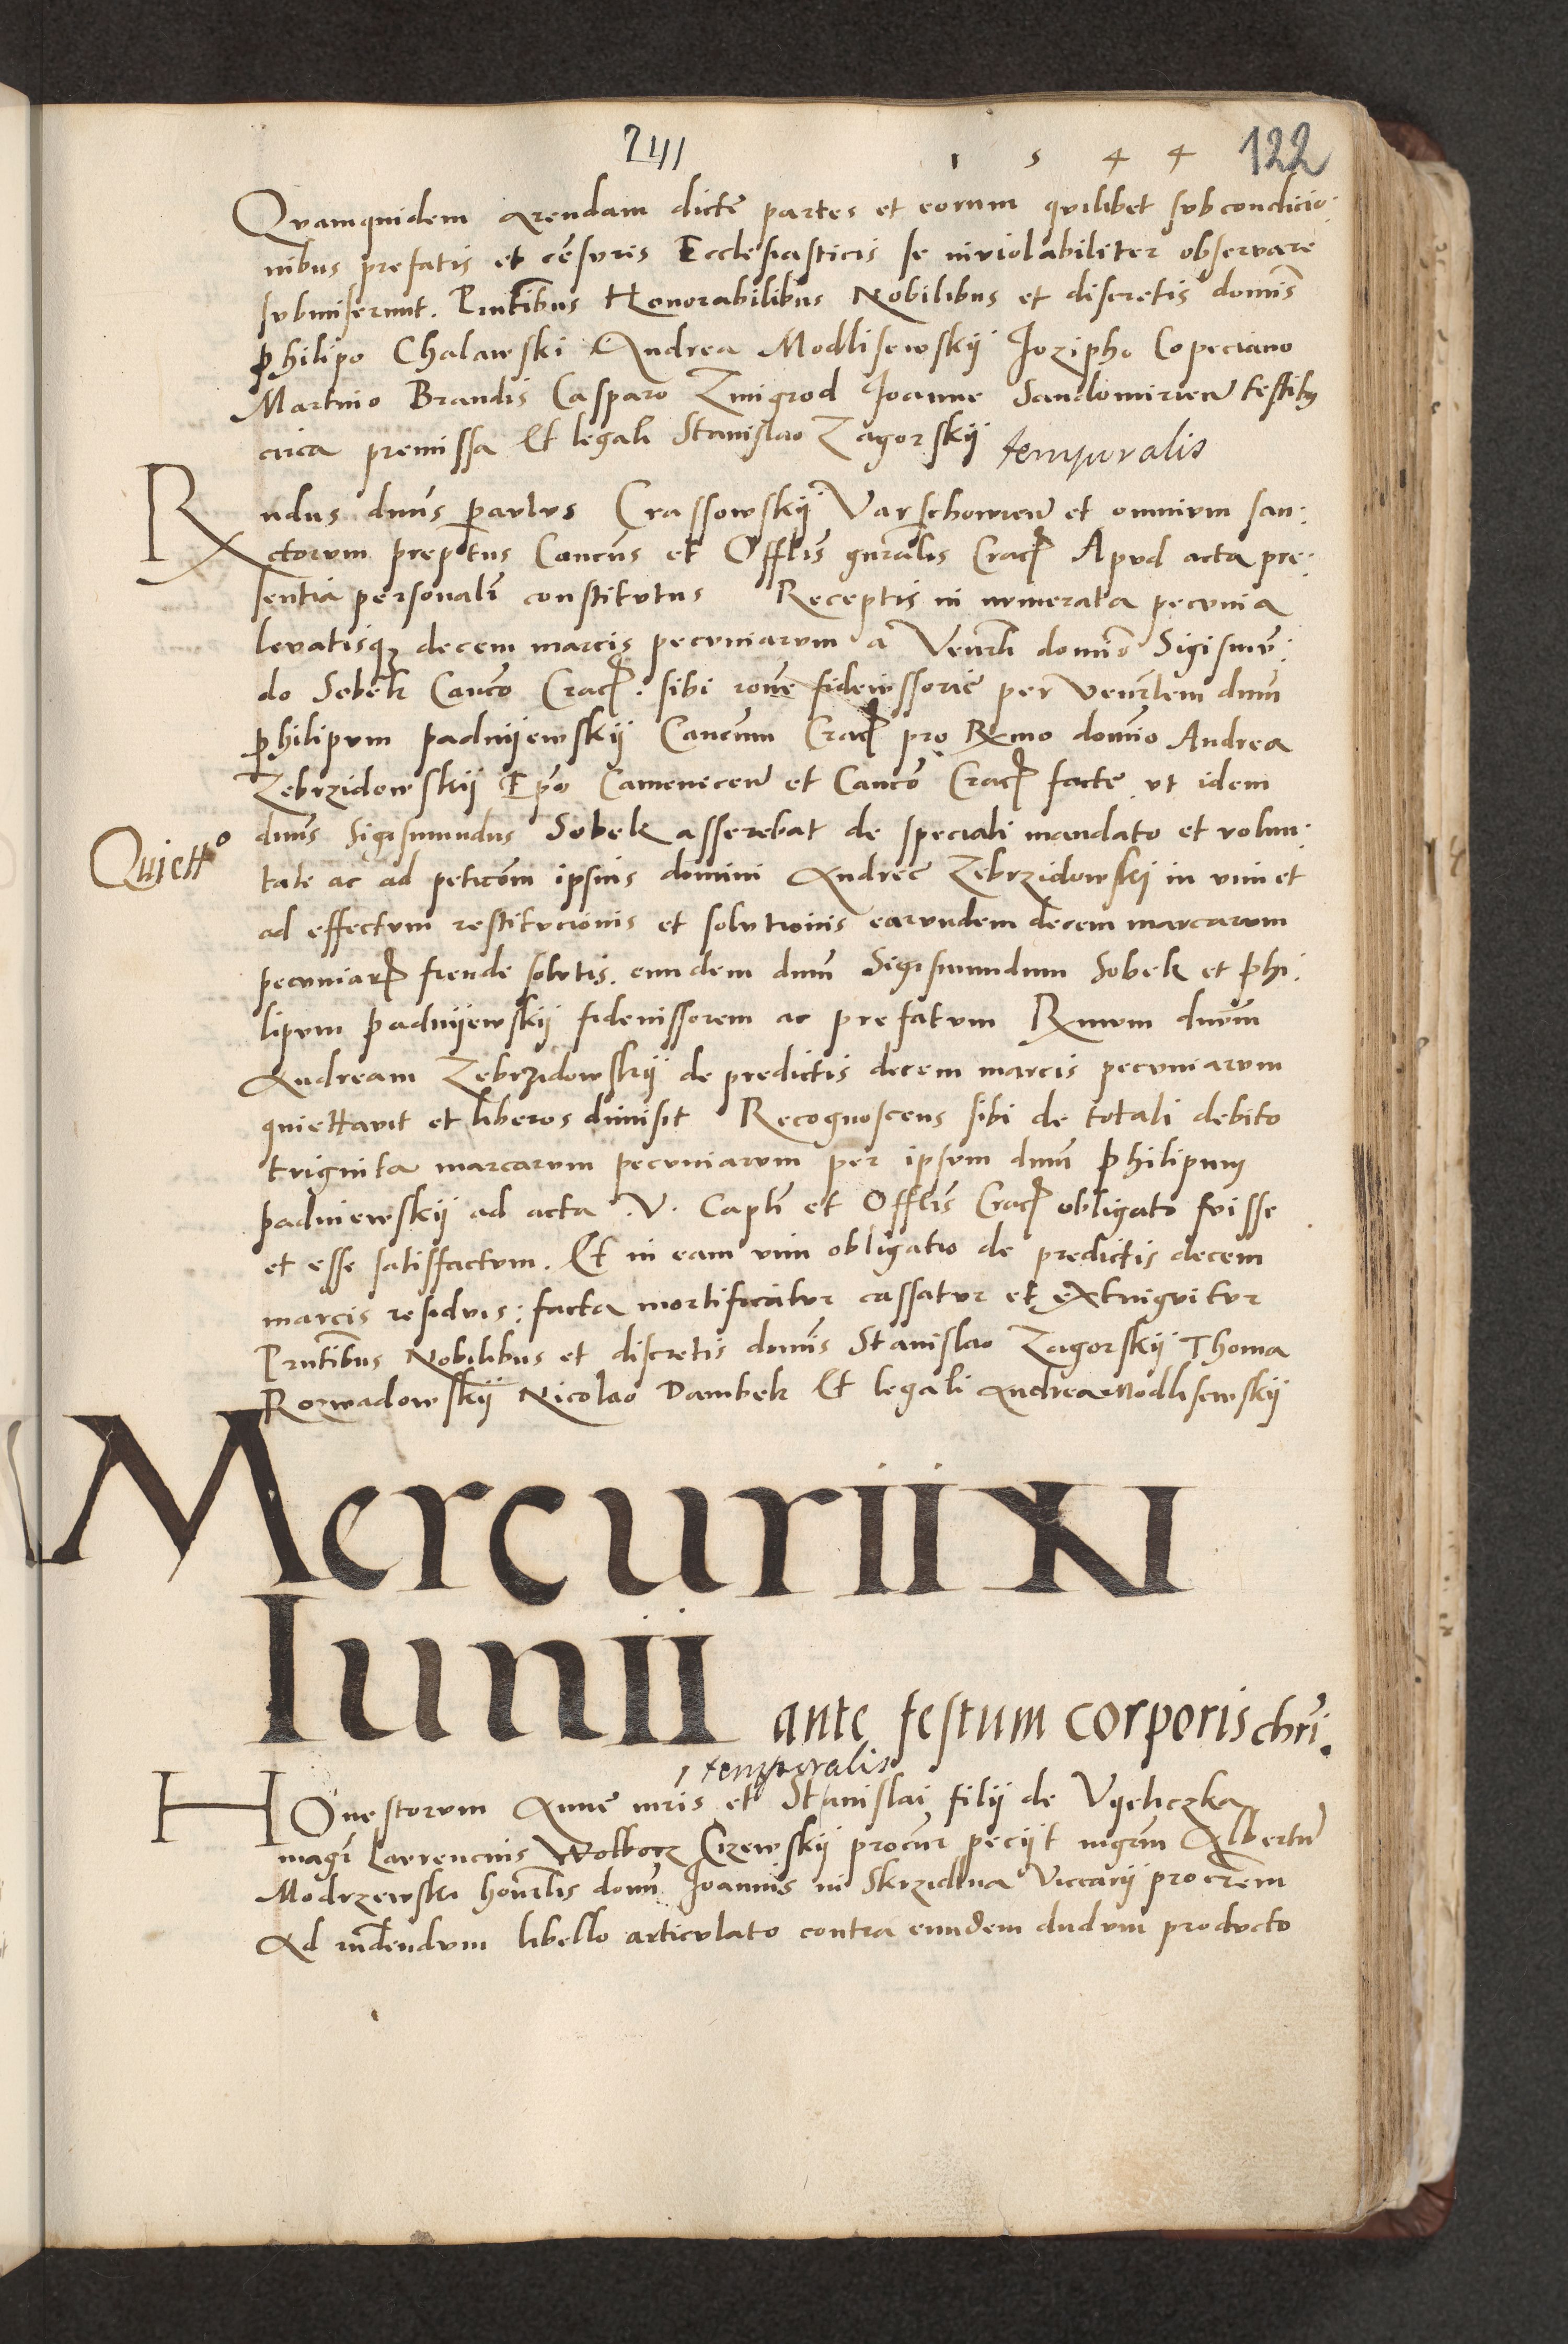 241 1 5 4 4 122
Quamquidem arendam dicte partes et eorum quilibet sub condicio:
nibus prefatis et cēsuris Ecclesiasticis se inviolabiliter observare
submiserunt. Pntibus Honorabilibus Nobilibus et discretis domīs
Philipo Chalawski Andrea Modlisewskij Jozipho Copeciano
Martino Brandis Casparo Zmigrod Joanne Sandomirien̄ testibus
circa premissa Et legali Stanislao Zagorskij temporalis
Rndus dnūs paulus Crassowskij Varschovien̄ et omnium san:
ctorum preptus Canc̄us et Offlīs gnrālis Crac̄ Apud acta pre:
sentia personalr̄ constitutus Receptis in numerata pecunia
levatisqȝ decem marcis pecuniarum a Venrli domīo Sigismū:
do Sobek Canc̄o Crac̄. sibi rone fideiussorie per Venrlem dnūm
philipum padnijewskij Cancum Crac̄ pro Rmo domīo Andrea
Zebrzidowskij Epō Camenecen̄ et Canc̄o Crac̄ facte ut idem
Quiettº
dnūs Sigismundus Sobek asserebat de speciali mandato et volun:
tate ac ad peticōm ipsius domini Andree Zebrzidowskj in vim et
ad effectum restitucionis et solutionis earundem decem marcarum
pecuniar̄ fiende solutis. eundem dnūm Sigismundum Sobek et phi:
lipum padnijewskij fideiussorem ac prefatum Rmum dnūm
Andream Zebrzidowskij de predictis decem marcis pecuniarum
quiettavit et liberos dimisit Recognoscens sibi de totali debito
triginta marcarum pecuniarum per ipsum dnūm philipum
padniewskij ad acta .V. Caplī et Offlīs Crac̄ obligato fuisse
et esse satisfactum. Et in eam vim obligatio de predictis decem
marcis residuis: facta mortificatur cassatur et extinguitur
Pntibus Nobilibus et discretis domīs Stanislao Zagorskij Thoma
Rozwadowskij Nicolao Dambek Et legali Andrea Modlisewskij
Mercurii XI
Iunii ante festum corporis chrī.
temporalis
Honestorum Anne mris et Stanislai filij de Vyeliczka
magr̄ Laurencius Wolborz Cizewskij procur̄ peciit mgrm̄ Albertū
Modrzewski honrlis domī Joannis in Skrzidlna Viccarij procr̄em
Ad rn̄dendum libello articulato contra eundem dudum producto